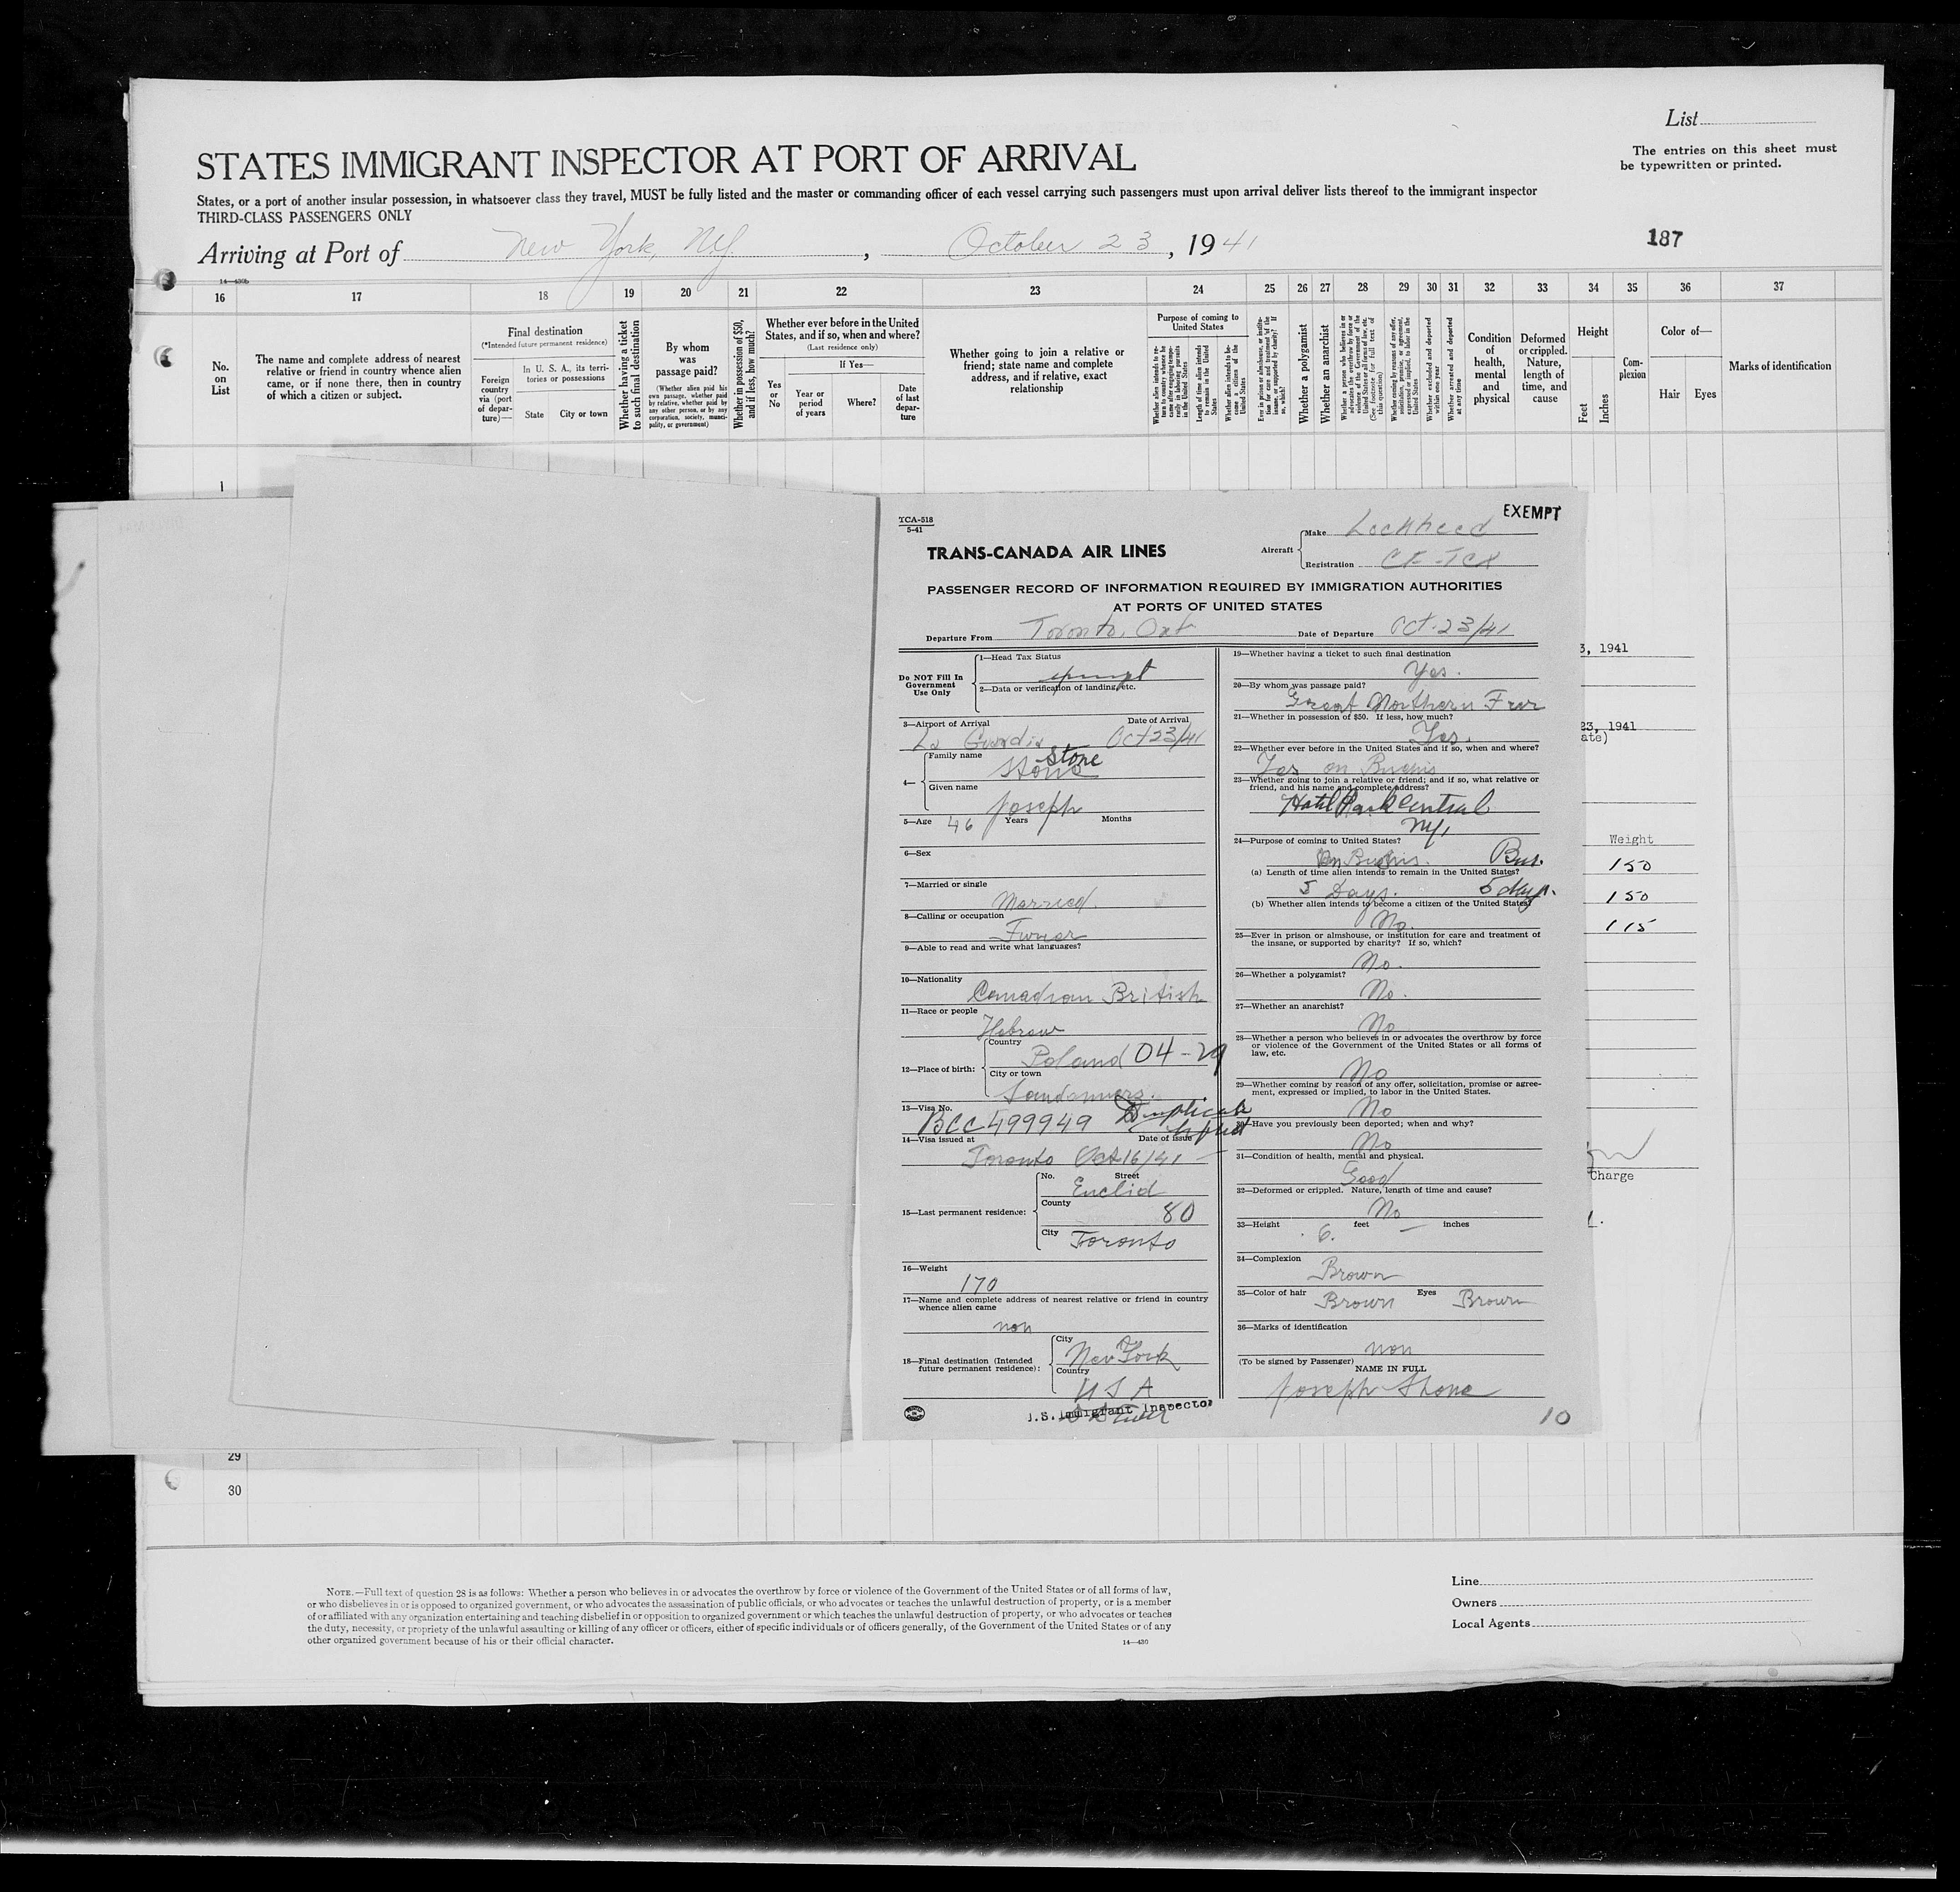 List
The entries on this sheet must
be typewritten or printed.
STATES IMMIGRANT INSPECTOR AT PORT OF ARRIVAL
States, or a port of another insular possession, in whatsoever class they travel, MUST be fully listed and the master or commanding officer of each vessel carrying such passengers must upon arrival deliver lists thereof to the immigrant inspector
THIRD-CLASS PASSENGERS ONLY
Arriving at Port of New York, N.Y., October 23, 1941
187
14—430b
16 17 18 19 20 21 22 23 24 25 26 27 28 29 30 31 32 33 34 35 36 37
No.
on
List
The name and complete address of nearest
relative or friend in country whence alien
came, or if none there, then in country
of which a citizen or subject.
Final destination
(*Intended future permanent residence)
Foreign
country
via (port
of depar-
ture)—
In U. S. A., its terri-
tories or possessions
State
City or town
Whether having a ticket
to such final destination
By whom
was
passage paid?
(Whether alien paid his
own passage, whether paid
by relative, whether paid by
any other person, or by any
corporation, society, munici-
pality, or government)
Whether in possession of $50,
and if less, how much?
Whether ever before in the United
States, and if so, when and where?
(Last residence only)
If Yes—
Yes
or
No
Year or
period
of years
Where?
Date
of last
depar-
ture
Whether going to join a relative or
friend; state name and complete
address, and if relative, exact
relationship
Purpose of coming to
United States
Whether alien intends to re-
turn to country whence he
came after engaging tempo-
rarily in laboring pursuits
in the United States
Length of time alien intends
to remain in the United
States
Whether alien intends to be-
come a citizen of the
United States
Ever in prison or almshouse, or institu-
tion for care and treatment of the
insane, or supported by charity? If
so, which?
Whether a polygamist
Whether an anarchist
Whether a person who believes in or
advocates the overthrow by force or
violence of the Government of the
United States or all forms of law, etc.
(See footnote for full text of
this question)
Whether coming by reasons of any offer,
solicitation, promise, or agreement,
expressed or implied, to labor in the
United States
Whether excluded and deported
within one year
Whether arrested and deported
at any time
Condition
of
health,
mental
and
physical
Deformed
or crippled.
Nature,
length of
time, and
cause
Height
Feet
Inches
Com-
plexion
Color of—
Hair
Eyes
Marks of identification
1
TCA-518
5-41
EXEMPT
TRANS-CANADA AIR LINES
Aircraft
Make Lockheed
Registration CF-TCX
PASSENGER RECORD OF INFORMATION REQUIRED BY IMMIGRATION AUTHORITIES
AT PORTS OF UNITED STATES
Departure From Toronto, Ont
Date of Departure Oct. 23/41
Do NOT Fill In
Government
Use Only
1—Head Tax Status
2—Data or verification of landing, etc.
3—Airport of Arrival
Date of Arrival
La Guardia Oct 23/41
4—
Family name
Stone Stone
Given name
Joseph
5—Age 46 Years Months
6—Sex
7—Married or single
Married.
8—Calling or occupation
9—Able to read and write what languages?
10—Nationality
Canadian British
11—Race or people
Hebrew
12—Place of birth:
Country
Poland 04-29
City or town
13—Visa No.
BCC 499949 Duplicate
14—Visa issued at
Date of issue
Toronto Oct 16/41
15—Last permanent residence:
No. Street
Euclid
County
80
City Toronto
16—Weight
170
17—Name and complete address of nearest relative or friend in country
whence alien came
non
18—Final destination (Intended
future permanent residence):
City
New York
Country
U S A
U.S. Immigrant Inspector
19—Whether having a ticket to such final destination
Yes.
20—By whom was passage paid?
Great Northern Fur
21—Whether in possession of $50. If less, how much?
Yes.
22—Whether ever before in the United States and if so, when and where?
Yes on
23—Whether going to join a relative or friend; and if so, what relative or
friend, and his name and complete address?
Hotel Park Central
NY,
24—Purpose of coming to United States?
Bus.
(a) Length of time alien intends to remain in the United States?
5 Days. 5 days.
(b) Whether alien intends to become a citizen of the United States?
No.
25—Ever in prison or almshouse, or institution for care and treatment of
the insane, or supported by charity? If so, which?
No.
26—Whether a polygamist?
No.
27—Whether an anarchist?
No
28—Whether a person who believes in or advocates the overthrow by force
or violence of the Government of the United States or all forms of
law, etc.
No
29—Whether coming by reason of any offer, solicitation, promise or agree-
ment, expressed or implied, to labor in the United States.
No
30—Have you previously been deported; when and why?
No
31—Condition of health, mental and physical.
Good
32—Deformed or crippled. Nature, length of time and cause?
No
33—Height 6. feet — inches
34—Complexion
Brown
35—Color of hair Eyes
Brown Brown
36—Marks of identification
non
(To be signed by Passenger)
NAME IN FULL
Joseph Stone
10
3, 1941
23, 1941
ate)
Weight
150
150
115
Charge
29
30
NOTE.—Full text of question 28 is as follows: Whether a person who believes in or advocates the overthrow by force or violence of the Government of the United States or of all forms of law,
or who disbelieves in or is opposed to organized government, or who advocates the assassination of public officials, or who advocates or teaches the unlawful destruction of property, or is a member
of or affiliated with any organization entertaining and teaching disbelief in or opposition to organized government or which teaches the unlawful destruction of property, or who advocates or teaches
the duty, necessity, or propriety of the unlawful assaulting or killing of any officer or officers, either of specific individuals or of officers generally, of the Government of the United States or of any
other organized government because of his or their official character.
14—430
Line
Owners
Local Agents